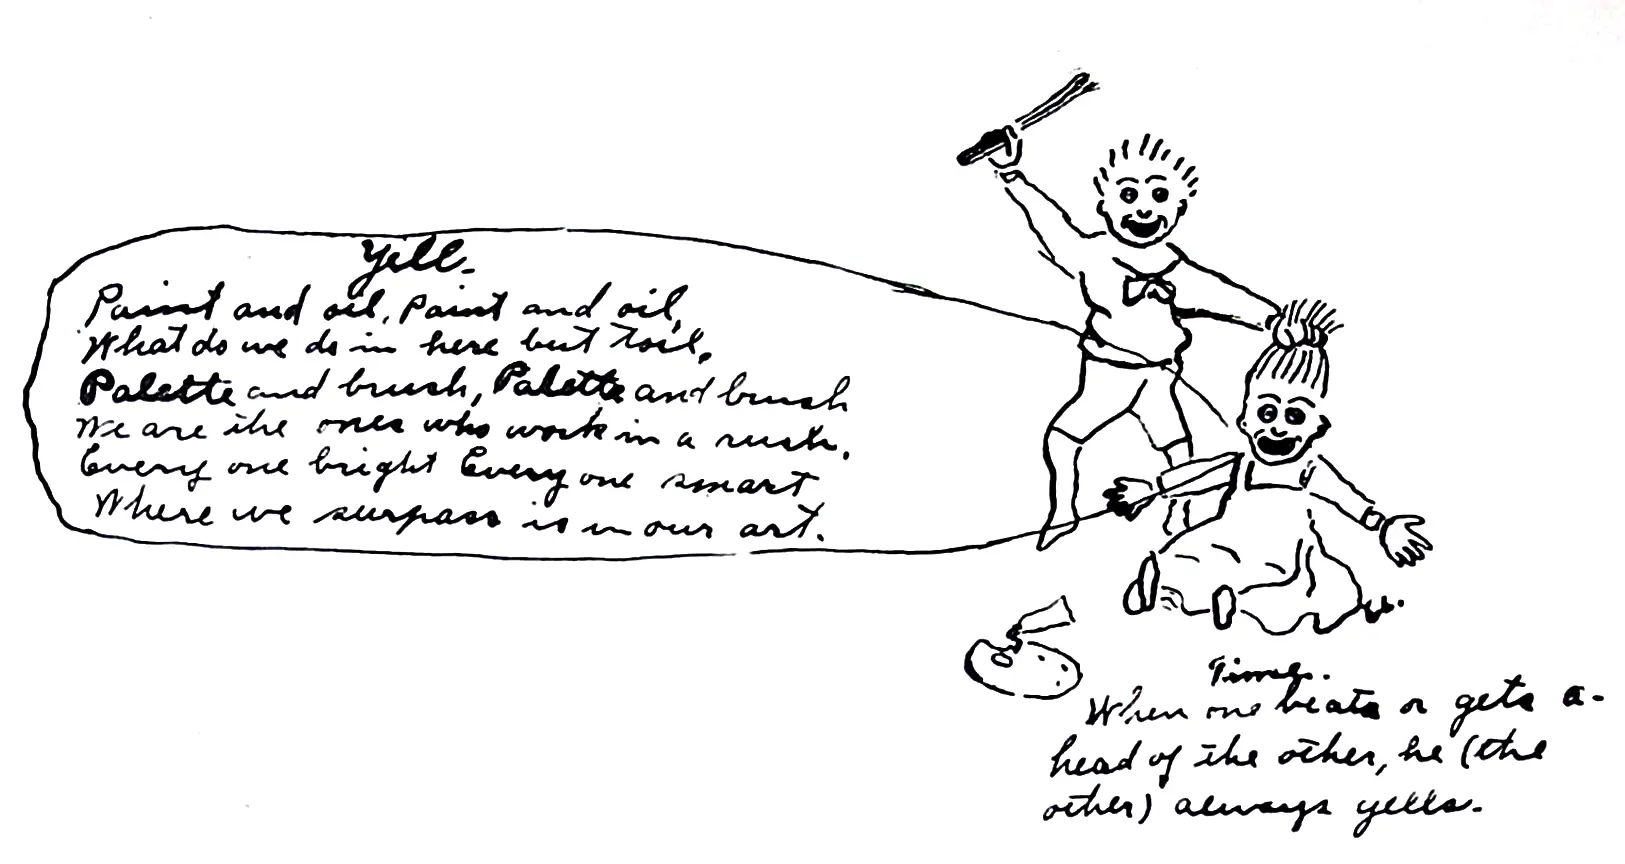 Yell.
Paint and oil, Paint and oil,
What do we do in here but toil,
Palette and brush, Palette and brush
We are the ones who work in a rush.
Every one bright Every one smart
Where we surpass is in our art.
Time.
When one beats or gets a-
head of the other, he (the
other) always yells.